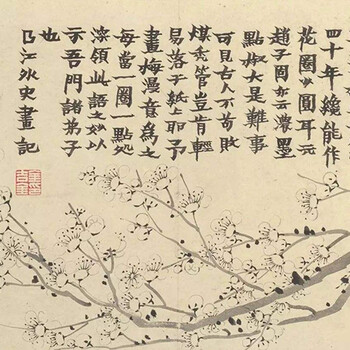 四十年纔能作
花圈少圓耳元
趙子固亦云濃墨
點椒大是難事
可見古人不苟敗
煤禿管豈肯輕
易落于紙上耶予
畫梅漫意為之
每當一圈一點處
深領此語之妙以
示吾門諸弟子
也
曲江外史畫記